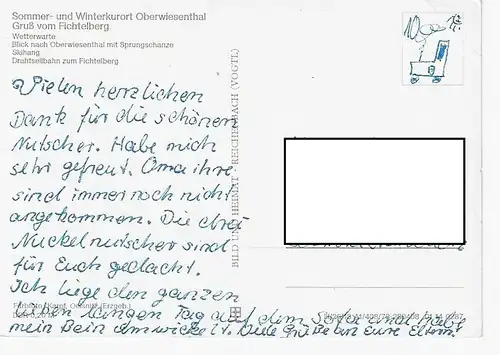 Sommer- und Winterkurort Oberwiesenthal
Gruß vom Fichtelberg
Wetterwarte
Blick nach Oberwiesenthal mit Sprungschanze
Skihang
Drahtseilbahn zum Fichtelberg
Vielen herzlichen
Dank für die schönen
Nutscher. Habe mich
sehr gefreut. Oma ihre
sind immer noch nicht
angekommen. Die drei
Nuckelnutscher sind
für Euch gedacht.
Ich liege den ganzen
lieben langen Tag auf dem Sofa und hab
mein Bein umwickelt. Viele Grüße an Eure Eltern!
BILD UND HEIMAT REICHENBACH (VOGTL)
10